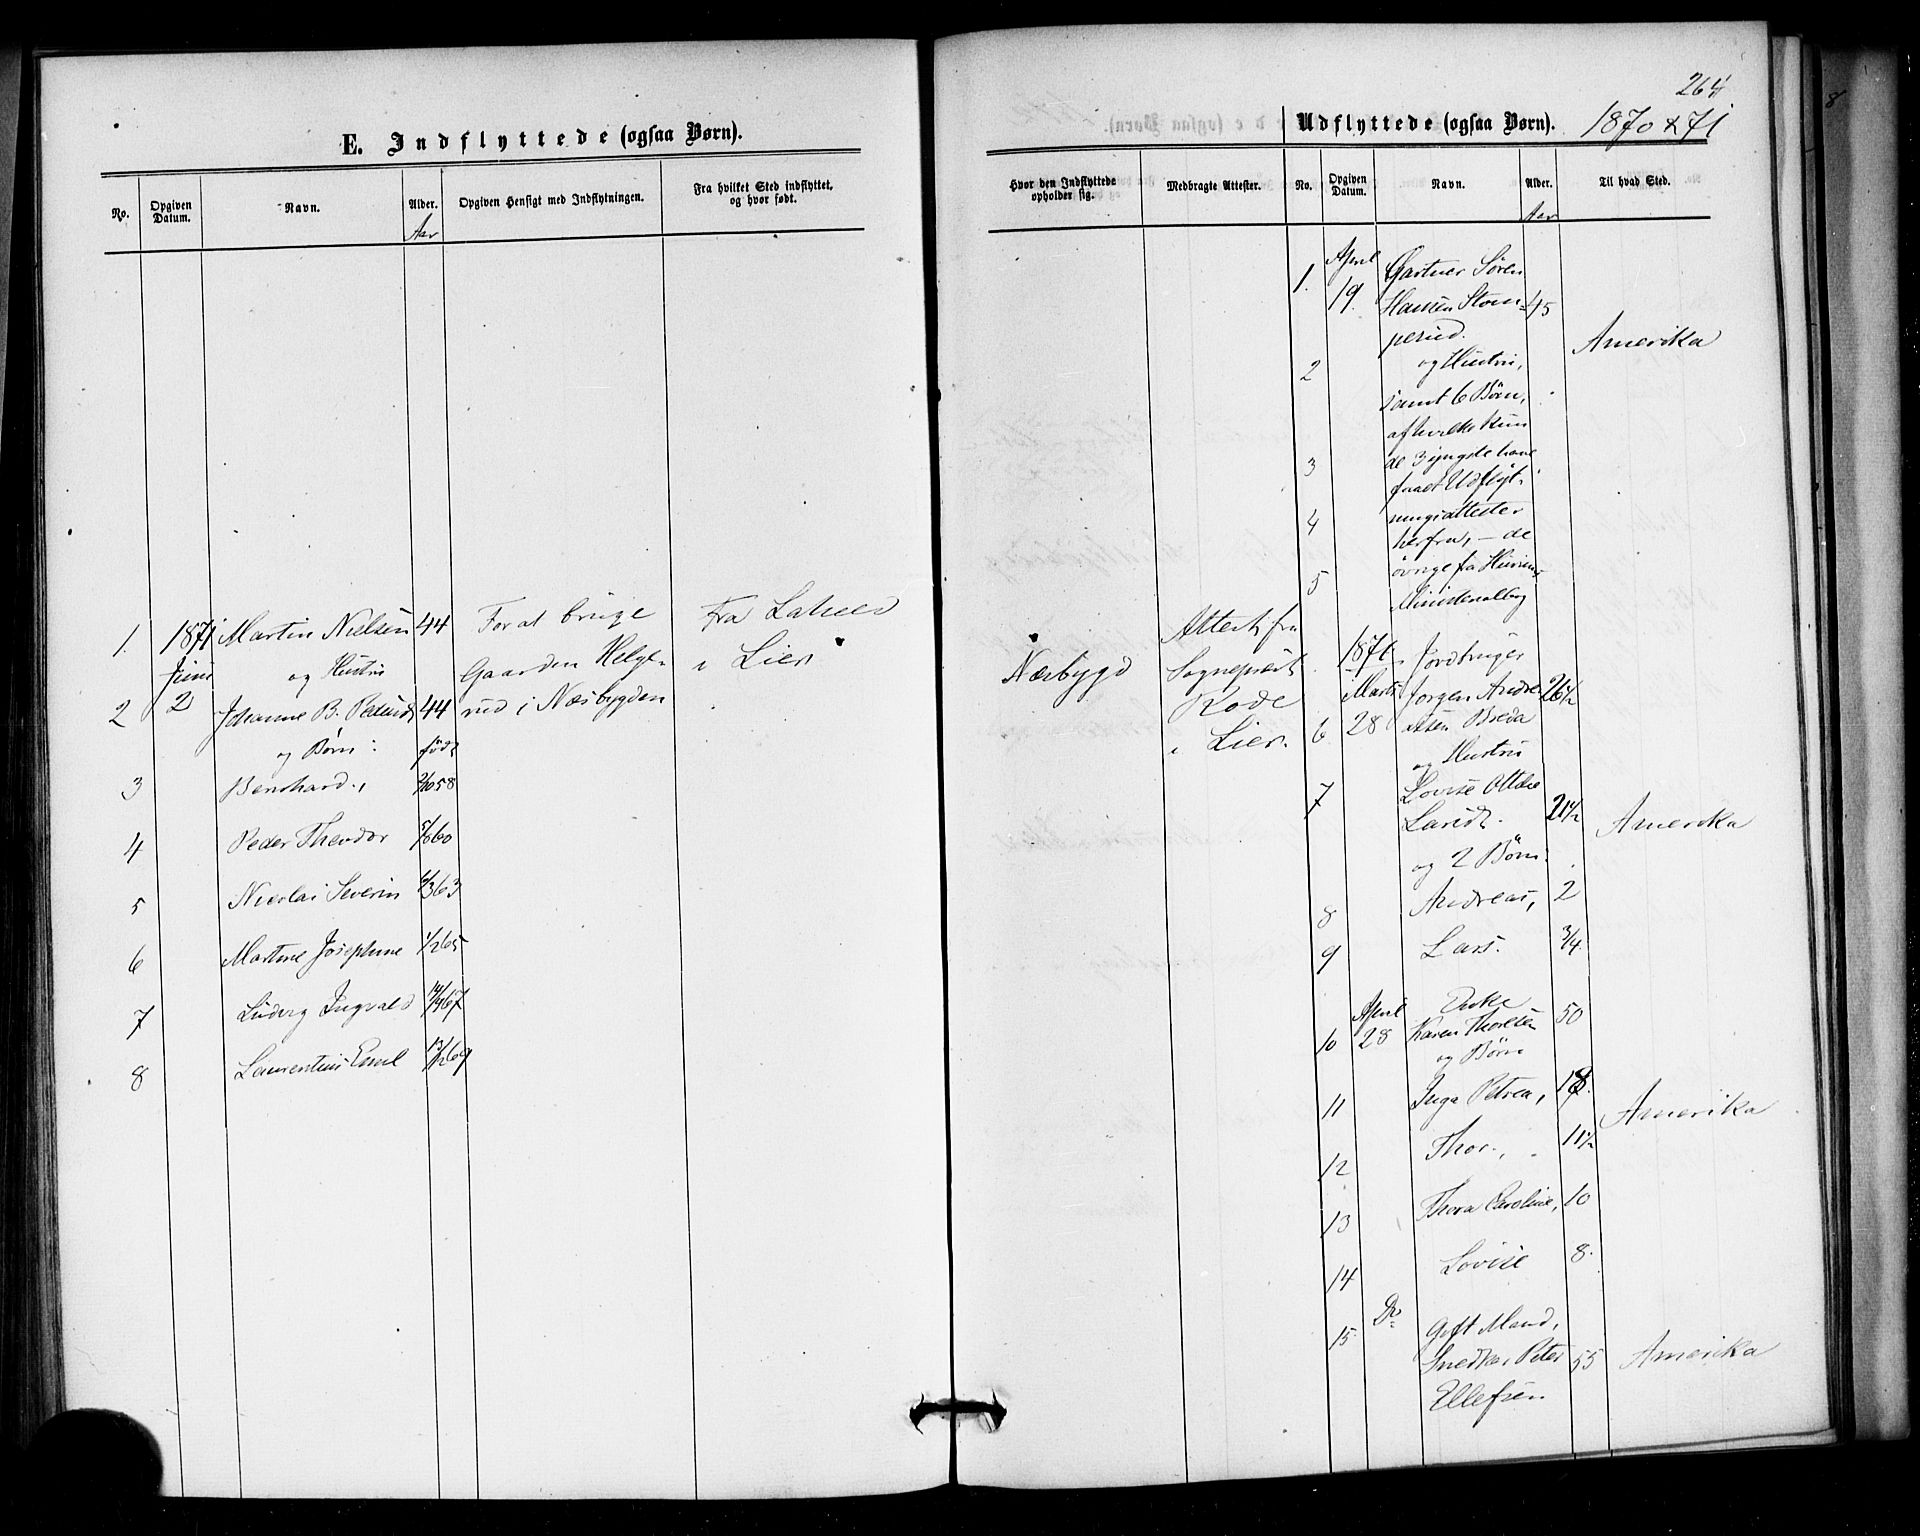 264
E. Indflyttede (ogsaa Børn).
No.
Opgiven Datum.
Navn.
Alder.
Aar
Opgiven Hensigt med Indflytningen.
Fra hvilket Sted indflyttet, og hvor født.
1. 1871 Martin Nielsen 44 For at bruge Fra
Juni og Hustru Gaarden Helge- i Lier
2 2 Johanne B. 44 rud i Næsbygden
og Børn: født
3 Bernhard, 2/10 58
4 Peder Theodor 60
5 Nicolai Severin 63
6 Martine Josephine 1/2 65
7 Ludvig Ingvald 67
8 Laurentius Emil 69
Udflyttede (ogsaa Børn). 1870 & 71
Hvor den Indflyttede opholder sig.
Medbragte Attester.
No.
Opgiven Datum.
Navn.
Alder.
Aar
Til hvad Sted.
Næsbygd
Attest fra
Sognepræst
Rode
i Lier.
1. April Gartner Søren
19. Hansen Stom- 45
perud. Amerika
2 og Hustru,
samt 6 Børn,
af hvilke kun
3 de 3 yngste have
faaet Udflyt-
4 ningsattester
herfra, – de
5 øvrige fra
1871. Jordbruger
Marts Jørgen Andre- 26 1/2
6 28 asen Breda
og Hustru
7 Lovise
Larsdt. 21 1/2 Amerika
og 2 Børn:
8 Andreas, 2
9 Lars. 3/4
April Enke
10 28 Karen Thorsten 50
og Børn
11 Inga Petrea, 18. Amerika
12 Thor, 11 1/2
13 Thora Caroline, 10
14 Lovise 8.
15. Do Gift Mand,
Snedker Peter 55 Amerika
Ellefsen
8